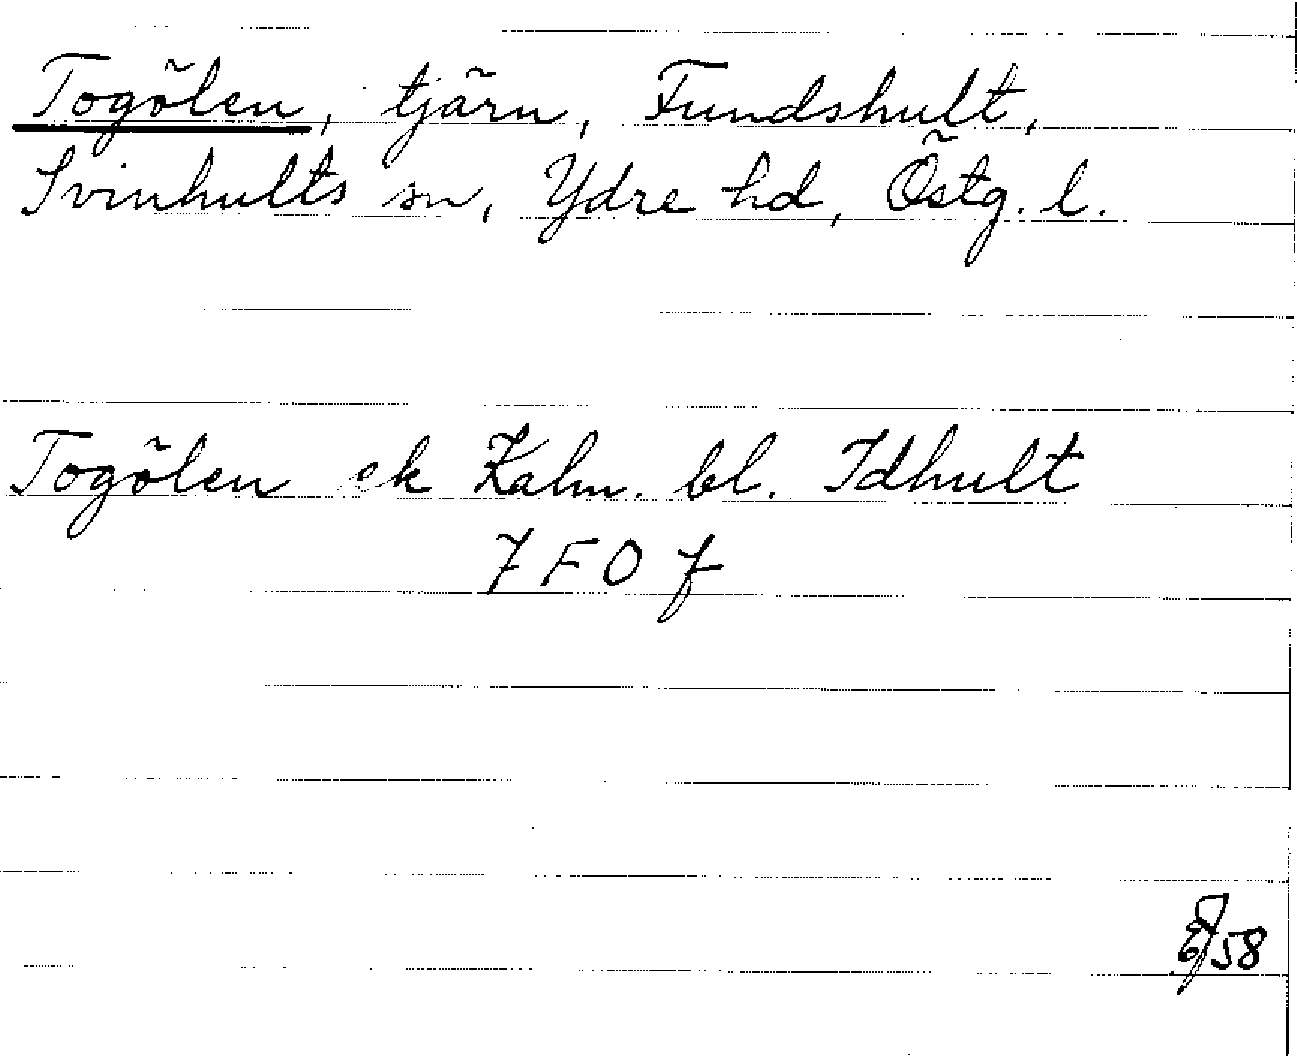 Togölen, tjärn, Fundshult,
Svinhults sn, Ydre hd, Östg. l.
Togölen ek Kalm. bl. Idhult
7 F O f
58